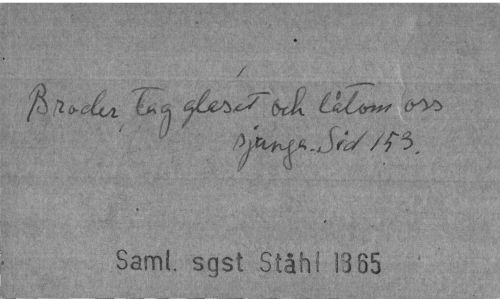 Broder, tag glaset och låtom oss
sjunga. Sid 153.
Saml. sgst Ståhl 1865